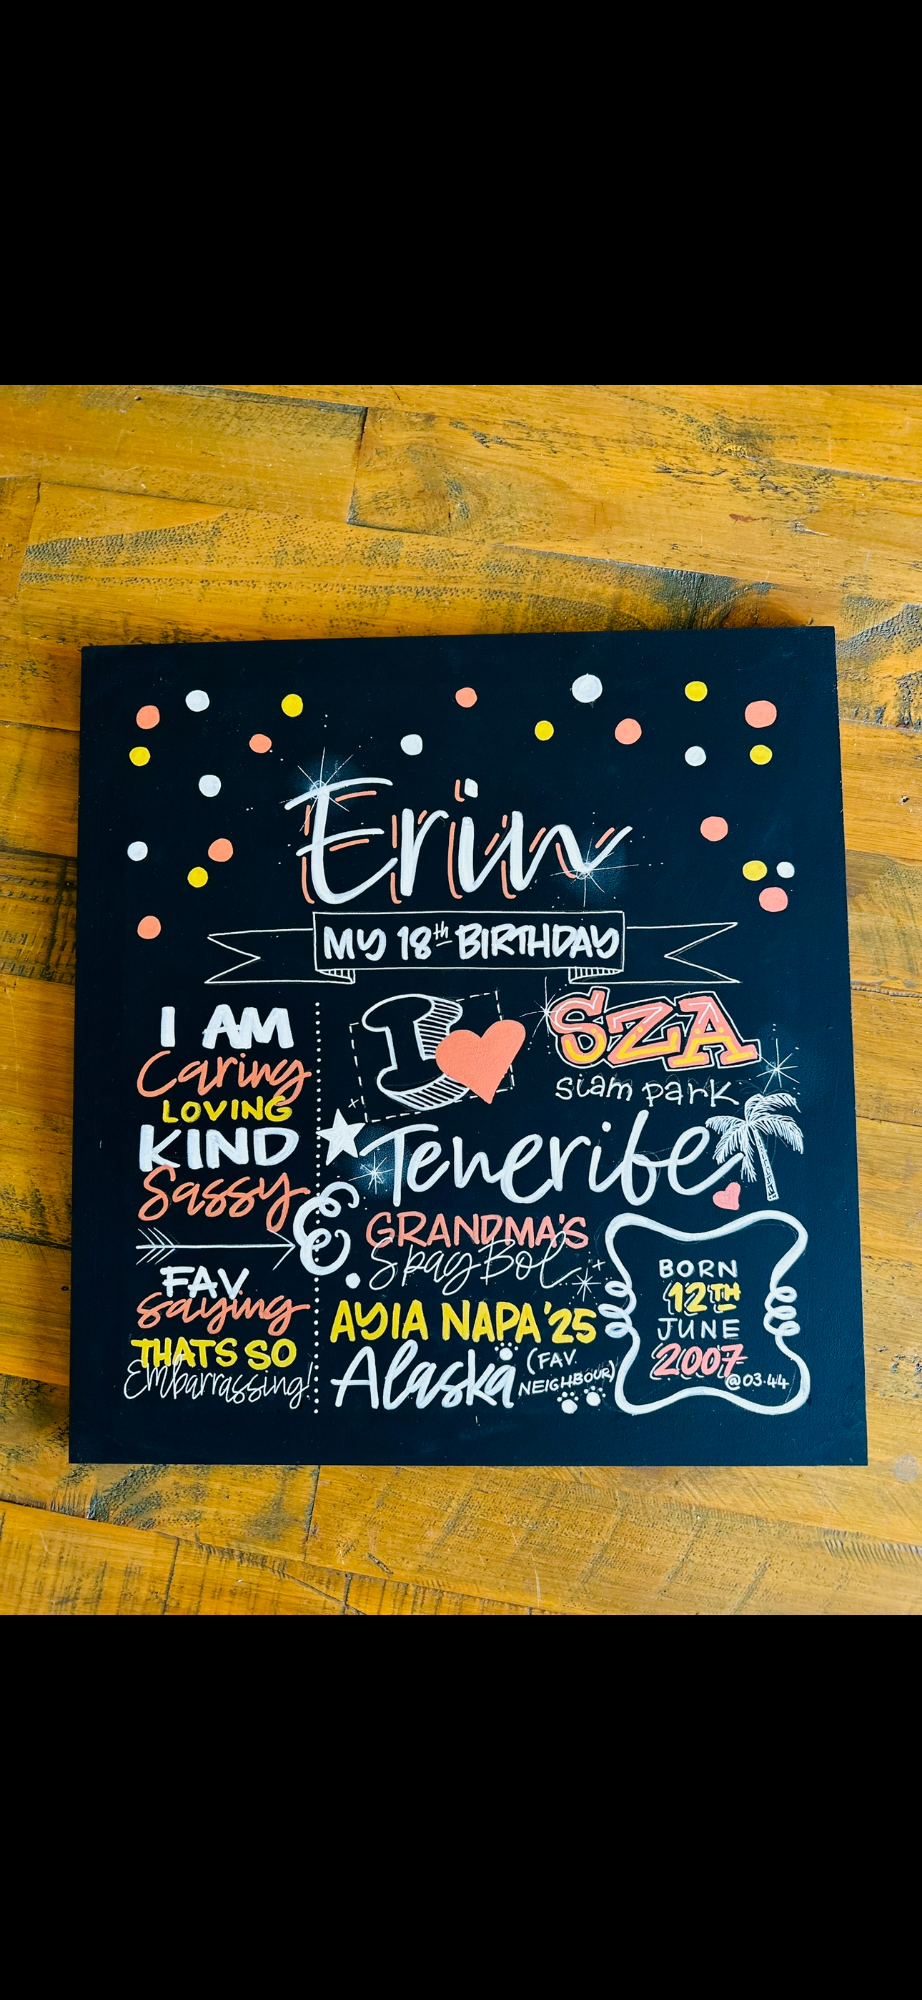 Erin
MY 18th BIRTHDAY
I AM
Caring
LOVING
KIND
Sassy
FAV
saying
THATS SO
Embarrassing!
I
SZA
Siam Park
Tenerife
&
GRANDMA'S
Spag Bol
AYIA NAPA '25
Alaska (FAV NEIGHBOUR)
BORN
12TH
JUNE
2007
@03.44